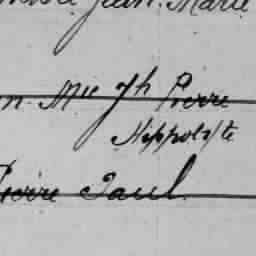 Jean. Marie
n. Mie Jh Pierre
Hippolyte
Pierre Paul